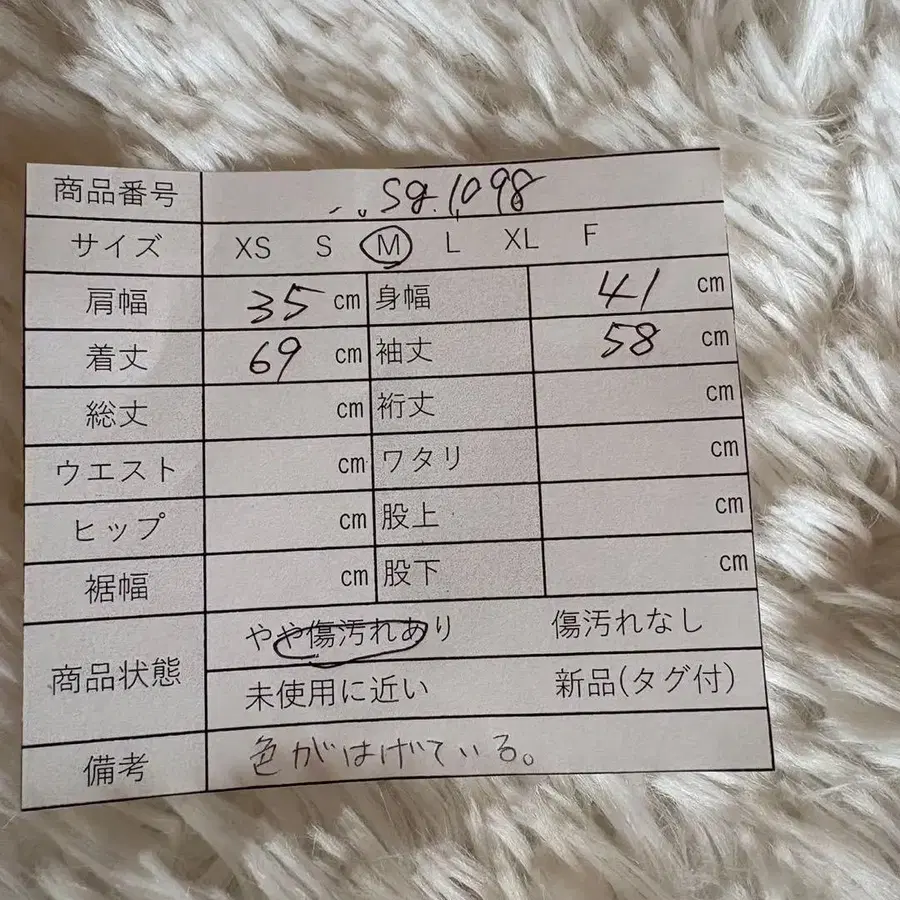 商品番号 Sg.1098
サイズ XS S M L XL F
肩幅 35 cm 身幅 41 cm
着丈 69 cm 袖丈 58 cm
総丈 cm 裄丈 cm
ウエスト cm ワタリ cm
ヒップ cm 股上 cm
裾幅 cm 股下 cm
商品状態 やや傷汚れあり 傷汚れなし
未使用に近い 新品(タグ付)
備考 色がはげている。